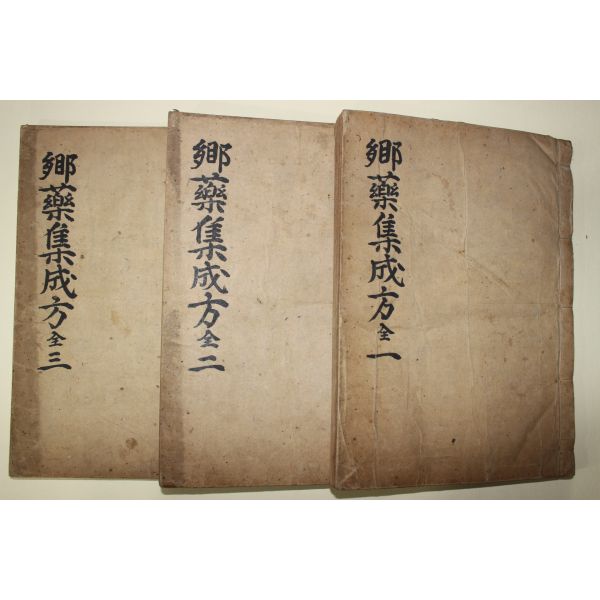 鄕藥集成方 全 一
鄕藥集成方 全 二
鄕藥集成方 全 三